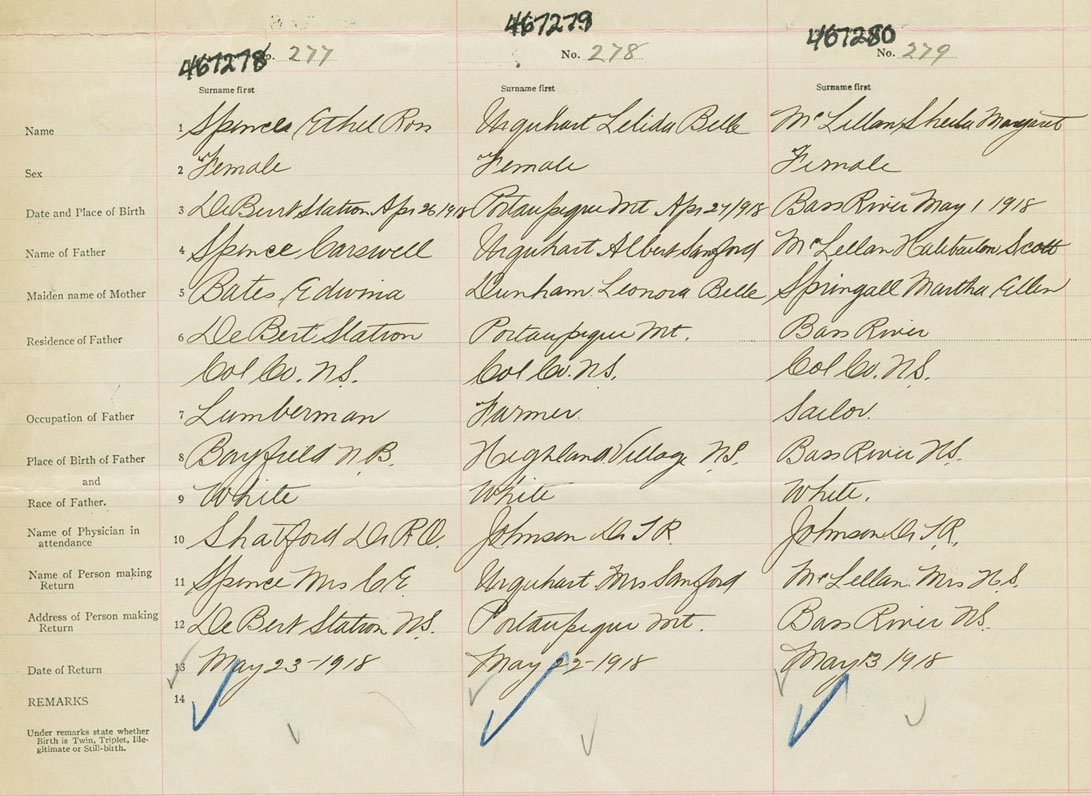 467278 467279 467280
No. 277 No. 278 No. 279
Surname first Surname first Surname first
Name 1 Spence Ethel Ross Urquhart Lelida Belle McLellan Sheila Margaret
Sex 2 Female Female Female
Date and Place of Birth 3 DeBert Station Apr 26 1918 Portaupique Mt Apr 27/918 Bass River May 1 1918
Name of Father 4 Spence Carswell Urquhart Albert Sanford McLellan Haliburton Scott
Maiden name of Mother 5 Bates Edwina Dunham Leonora Belle Springall Martha Ellen
Residence of Father 6 DeBert Station Portaupique Mt. Bass River
Col Co. N.S. Col Co. N.S. Col Co. N.S.
Occupation of Father 7 Lumberman Farmer Sailor.
Place of Birth of Father 8 Bayfield N.B. Highland Village N.S. Bass River N.S.
and
Race of Father. 9 White White White.
Name of Physician in
attendance 10 Shatford Dr R.O. Johnson Dr T R. Johnson Dr T.R.
Name of Person making
Return 11 Spence Mrs C.E. Urquhart Mrs Sanford McLellan Mrs H.S.
Address of Person making
Return 12 DeBert Station N.S. Portaupique Mt. Bass River N.S.
Date of Return 13 May 23-1918 May 22-1918 May 13 1918
REMARKS 14
Under remarks state whether
Birth is Twin, Triplet, Ille-
gitimate or Still-birth.